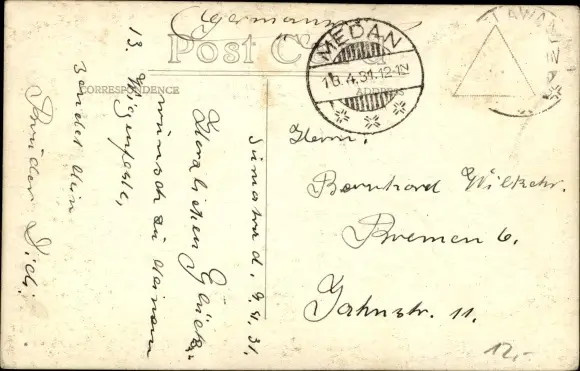 (Germann
Post Card
CORRESPONDENCE
ADDRESS
MEDAN
16.4.31.12-1N
LAWAN
Sumatra d. 9.4.31.
Herzlichen Glück-
wunsch zu deinem
13. Wiegenfeste,
sendet dein
Bruder Didi.
Herrn.
Bernhard Wilkehr.
Bremen 6.
Jahnstr. 11.
12,-